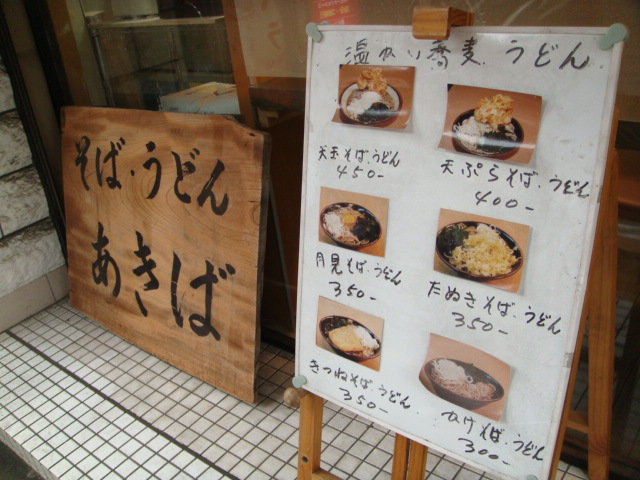 そば・うどん
あきば
温かい蕎麦、うどん
天玉そば、うどん
450-
天ぷらそば、うどん
400-
月見そば、うどん
350-
たぬきそば、うどん
350-
きつねそば、うどん
350-
かけそば、うどん
300-